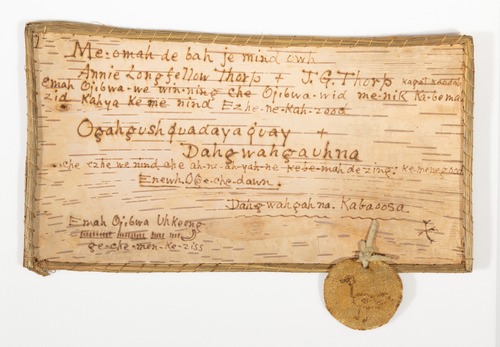 Me-omah de bah je mind owh
Annie Longfellow Thorp + J.G. Thorp
emah Ojibwa-we win-ning che Ojibwa-wid me-nik ka-be-ma
zid kahya ke me nind Ezhe-ne-kah-zood
Ogahgushquadayaquay +
Dahgwahgauhna
che ezhe we nind che ah-ni-ah-yah-ne kebe-mah de zing. ke-menegood
Enewh Oge-che-dawn.
Dahgwahgahna. Kabaoosa
Emah Ojibwa Uhkeeng
ge-che-men-ke-ziss